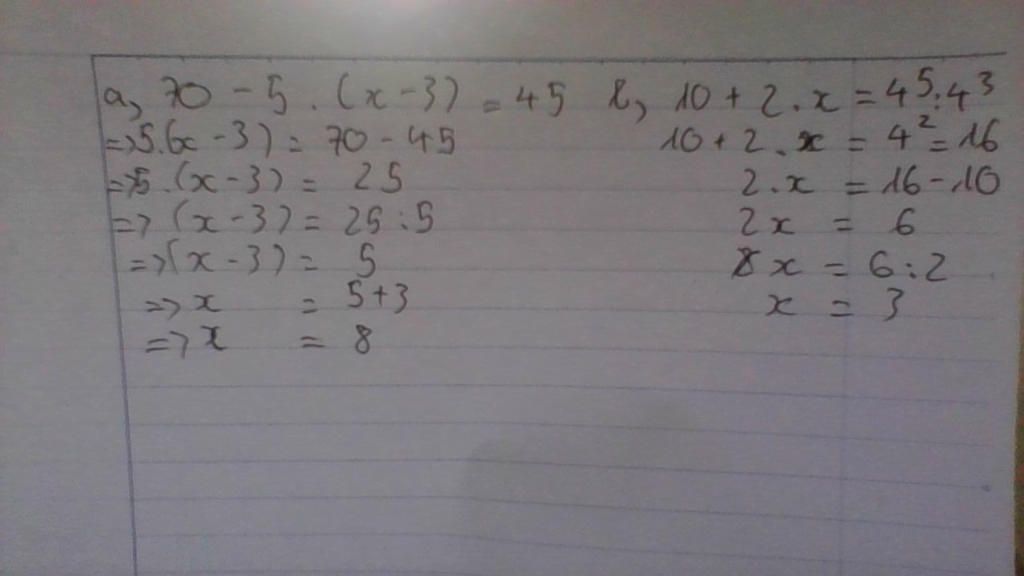 a, 70 - 5 . (x - 3) = 45
=> 5.(x - 3) = 70 - 45
=> 5 . (x - 3) = 25
=> (x - 3) = 25 : 5
=> (x - 3) = 5
=> x = 5 + 3
=> x = 8
b, 10 + 2 . x = 4⁵ : 4³
10 + 2 . x = 4² = 16
2 . x = 16 - 10
2x = 6
x = 6 : 2
x = 3